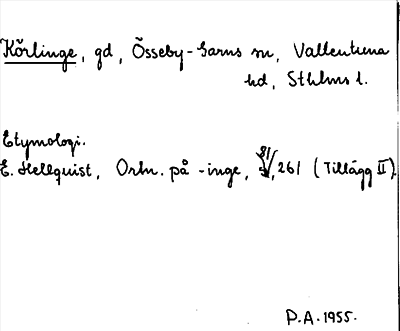 Kõrlinge, gd, Össeby-Garns sn, Vallentuna
hd, Sthlms l.
Etymologi.
E. Hellquist, Ortn. på -inge, 81/, 261 (Tillägg II).
P.A. 1955.